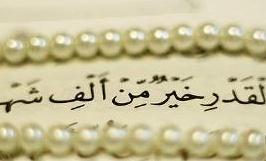 لْقَدْرِ خَيْرٌ مِّنْ أَلْفِ شَه